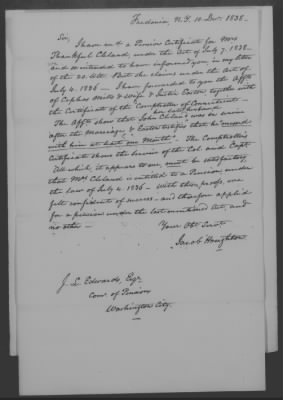 Fredonia, N.Y. 10 Decr. 1838.
Sir,
I have recd a Pension Certificate for Mrs
Thankful Cleland, under the act of July 7, 1838.
and so intended to have informed you, in my letter
of the 20. ult. But she claims under the Act of
July 4. 1836 — I have forwarded to you the Affts
of Cephas Mills & wife & Justin Carter together with
the Certificate of the Comptroller of Connecticut —
The Affts show that John Cleland her late husband was in service
after the Marriage, & Carter testifies that he messed
with him at least one Month. The Comptroller's
Certificate shows the service of the Col. and Capt.
All which, it appears to me, must be satisfactory,
that Mrs Cleland is entitled to a Pension under
the law of July 4. 1836 — With these proofs, we
felt confident of success — and therefore applied
for a pension under the last mentioned Act, and
no other —
Your Obt Servt.
Jacob Houghton
J. L. Edwards, Esqr
Comr. of Pensions
Washington City.